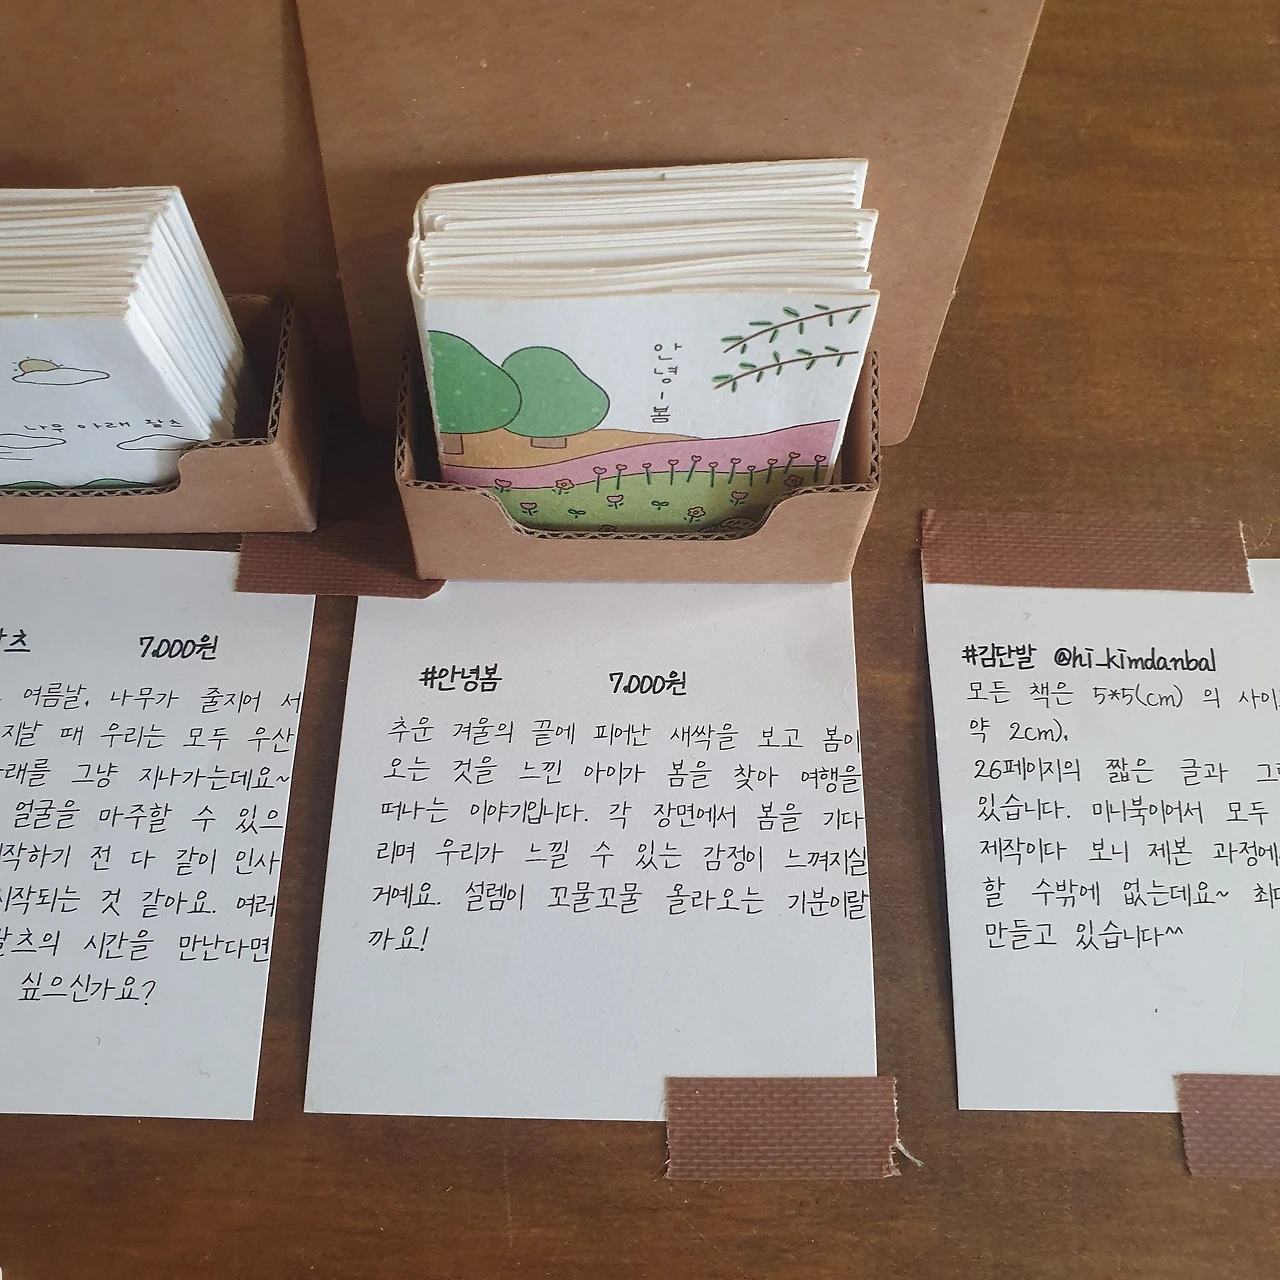 나무 아래 왈츠
안녕-봄
츠 7,000원
여름날, 나무가 줄지어 서
지날 때 우리는 모두 우산
래를 그냥 지나가는데요~
얼굴을 마주할 수 있으
작하기 전 다 같이 인사
시작되는 것 같아요. 여러
왈츠의 시간을 만난다면
싶으신가요?
#안녕봄 7,000원
추운 겨울의 끝에 피어난 새싹을 보고 봄이
오는 것을 느낀 아이가 봄을 찾아 여행을
떠나는 이야기입니다. 각 장면에서 봄을 기다
리며 우리가 느낄 수 있는 감정이 느껴지실
거예요. 설렘이 꼬물꼬물 올라오는 기분이랄
까요!
#김단발 @hi_kimdanbal
모든 책은 5*5(cm) 의 사이
약 2cm).
26페이지의 짧은 글과 그
있습니다. 미니북이어서 모두
제작이다 보니 제본 과정에
할 수밖에 없는데요~ 최대
만들고 있습니다^^